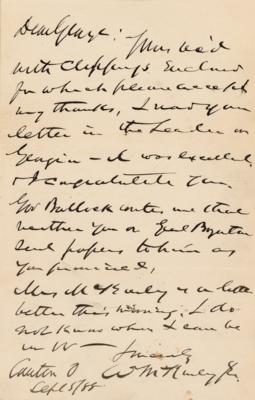 Dear George: Yours rec'd
with Clippings Enclosed
for which please accept
my thanks, I read your
letter in the Leader on
Georgia - it was excellent
& I congratulate you.
Gov Bullock writes me that
neither you or Genl Boynton
send papers to him as
you promised,
Mrs McKinley is a little
better this morning. I do
not know when I can be
in W-
Sincerely
Canton O
WMcKinley Jr
Sept 5/88